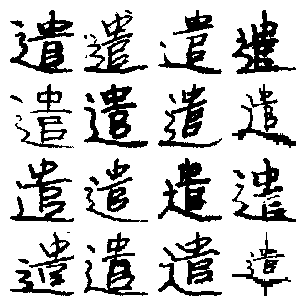 遣遣遣遣
遣遣遣遣
遣遣遣遣
遣遣遣遣